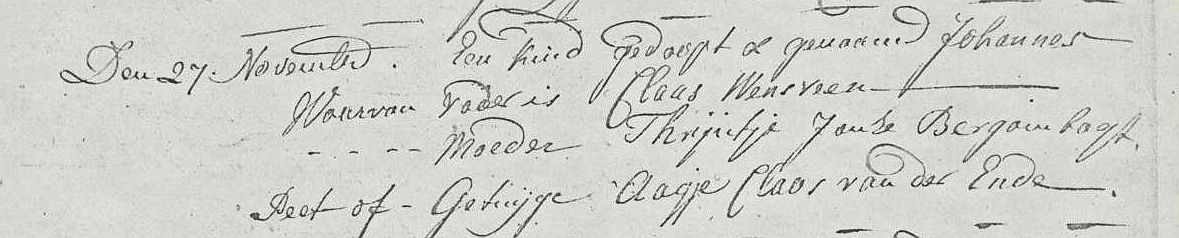 Den 27. November. Een kind gedoopt & genaamd Johannes
Waarvan Vader is Claas Wensveen
- - - - Moeder Thrijntje Jonke Bergambagt.
Peet of - Getuijge Aagje Claas van der Ende.